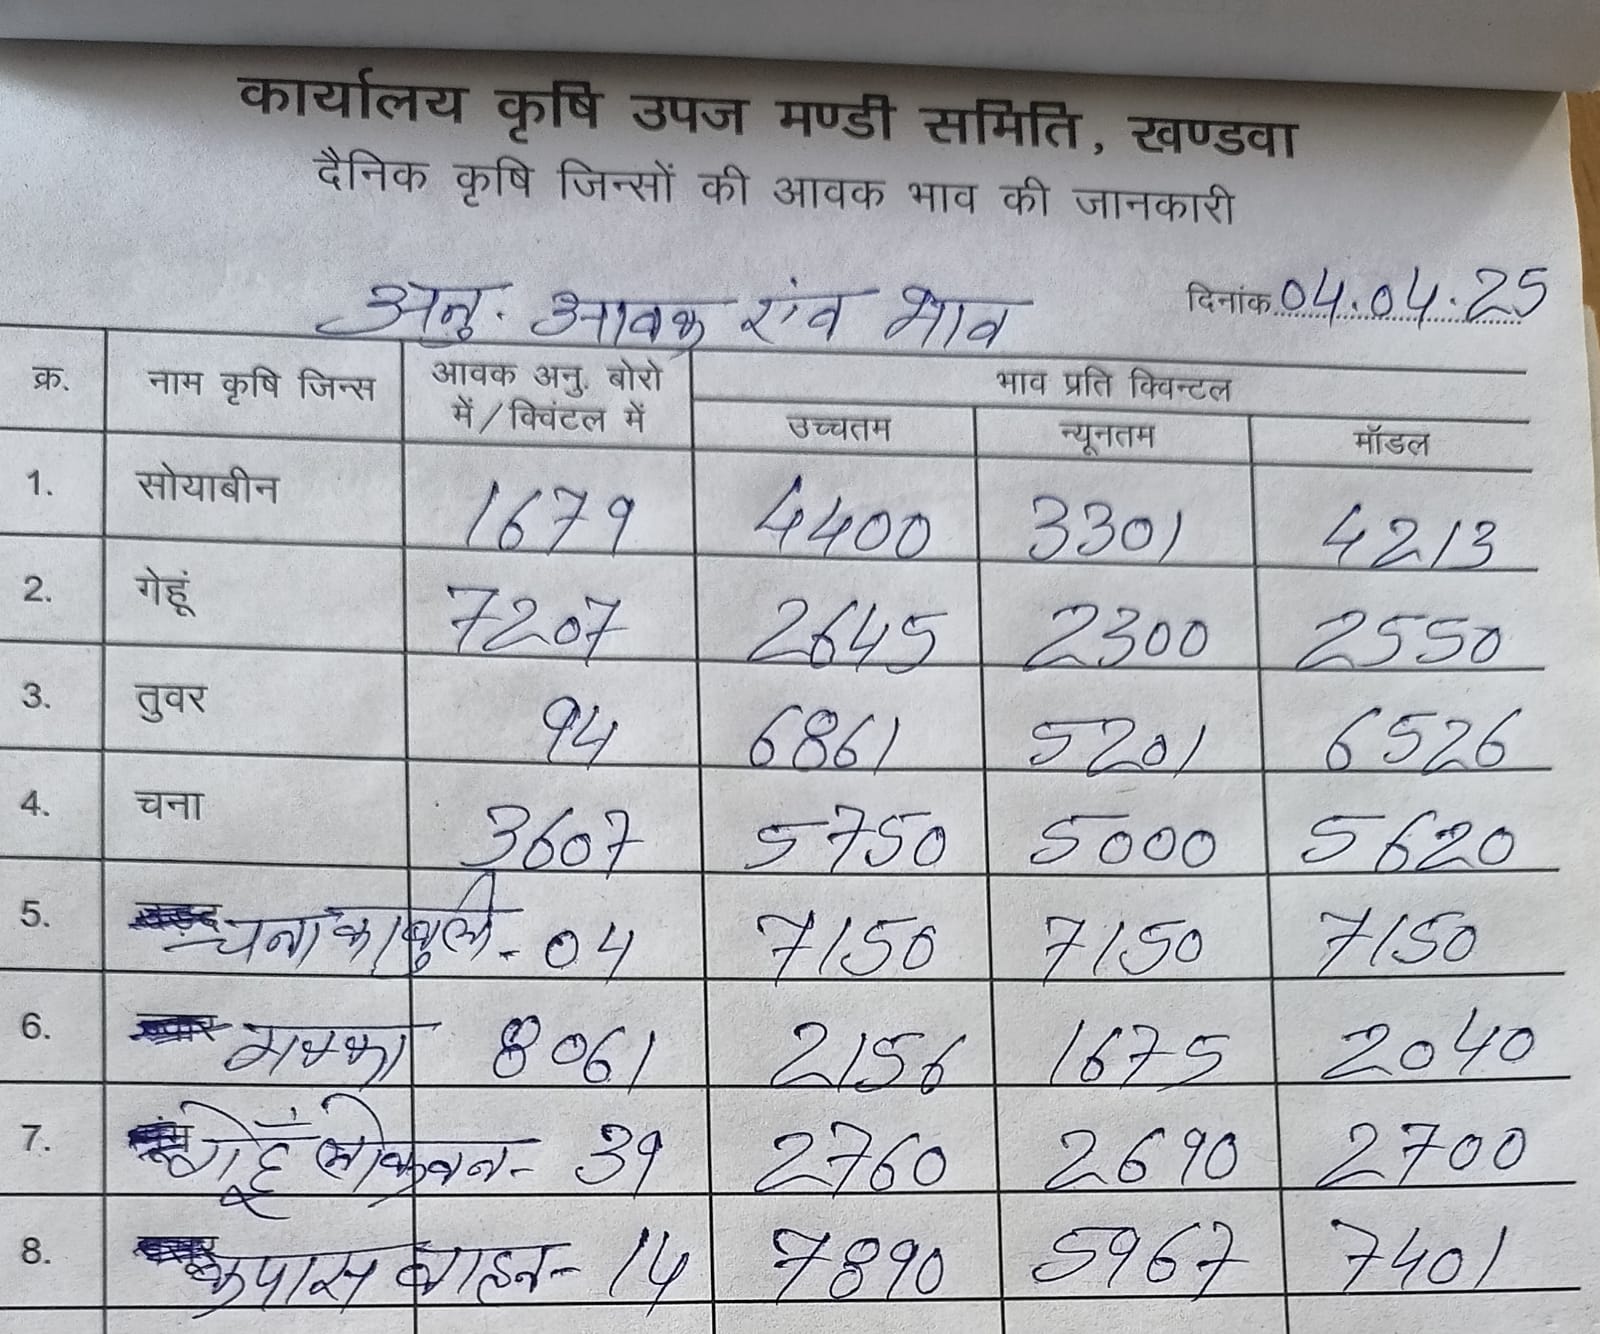 कार्यालय कृषि उपज मण्डी समिति, खण्डवा
दैनिक कृषि जिन्सों की आवक भाव की जानकारी
दिनांक 04.04.25
अनु. आवक एंव भाव
क्र. नाम कृषि जिन्स आवक अनु. बोरो में/क्विंटल में भाव प्रति क्विन्टल
उच्चतम न्यूनतम मॉडल
1. सोयाबीन 1679 4400 3301 4213
2. गेहूं 7207 2645 2300 2550
3. तुवर 94 6861 5201 6526
4. चना 3607 5750 5000 5620
5. चना काबुली - 04 7150 7150 7150
6. मक्का 8061 2156 1675 2040
7. गेहूँ लोकवन - 39 2760 2690 2700
8. कपास वाहन - 14 7890 5967 7401